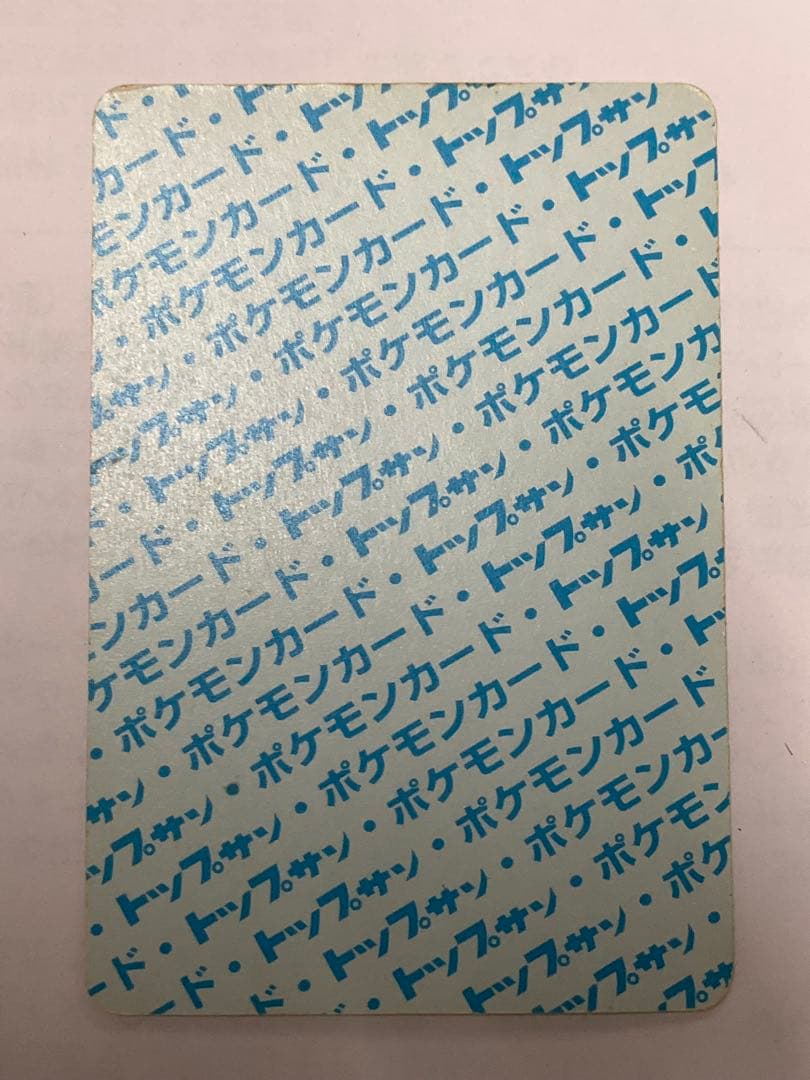 ド・
カード・ト
モンカード・トッ
ポケモンカード・トップサ
・ポケモンカード・トップサン
サン・ポケモンカード・トップサン
プサン・ポケモンカード・トップサン
トップサン・ポケモンカード・トップ
・トップサン・ポケモンカード・ト
ド・トップサン・ポケモンカード
ード・トップサン・ポケモンカ
ンカード・トップサン・ポケモ
ケモンカード・トップサン・ポ
・ポケモンカード・トップサン・
・ポケモンカード・トップサン
サン・ポケモンカード・トップ
プサン・ポケモンカード・ト
トップサン・ポケモンカード
・トップサン・ポケモンカー
ド・トップサン・ポケモン
ド・トップサン・ポケ
・トップサン・
トップサン